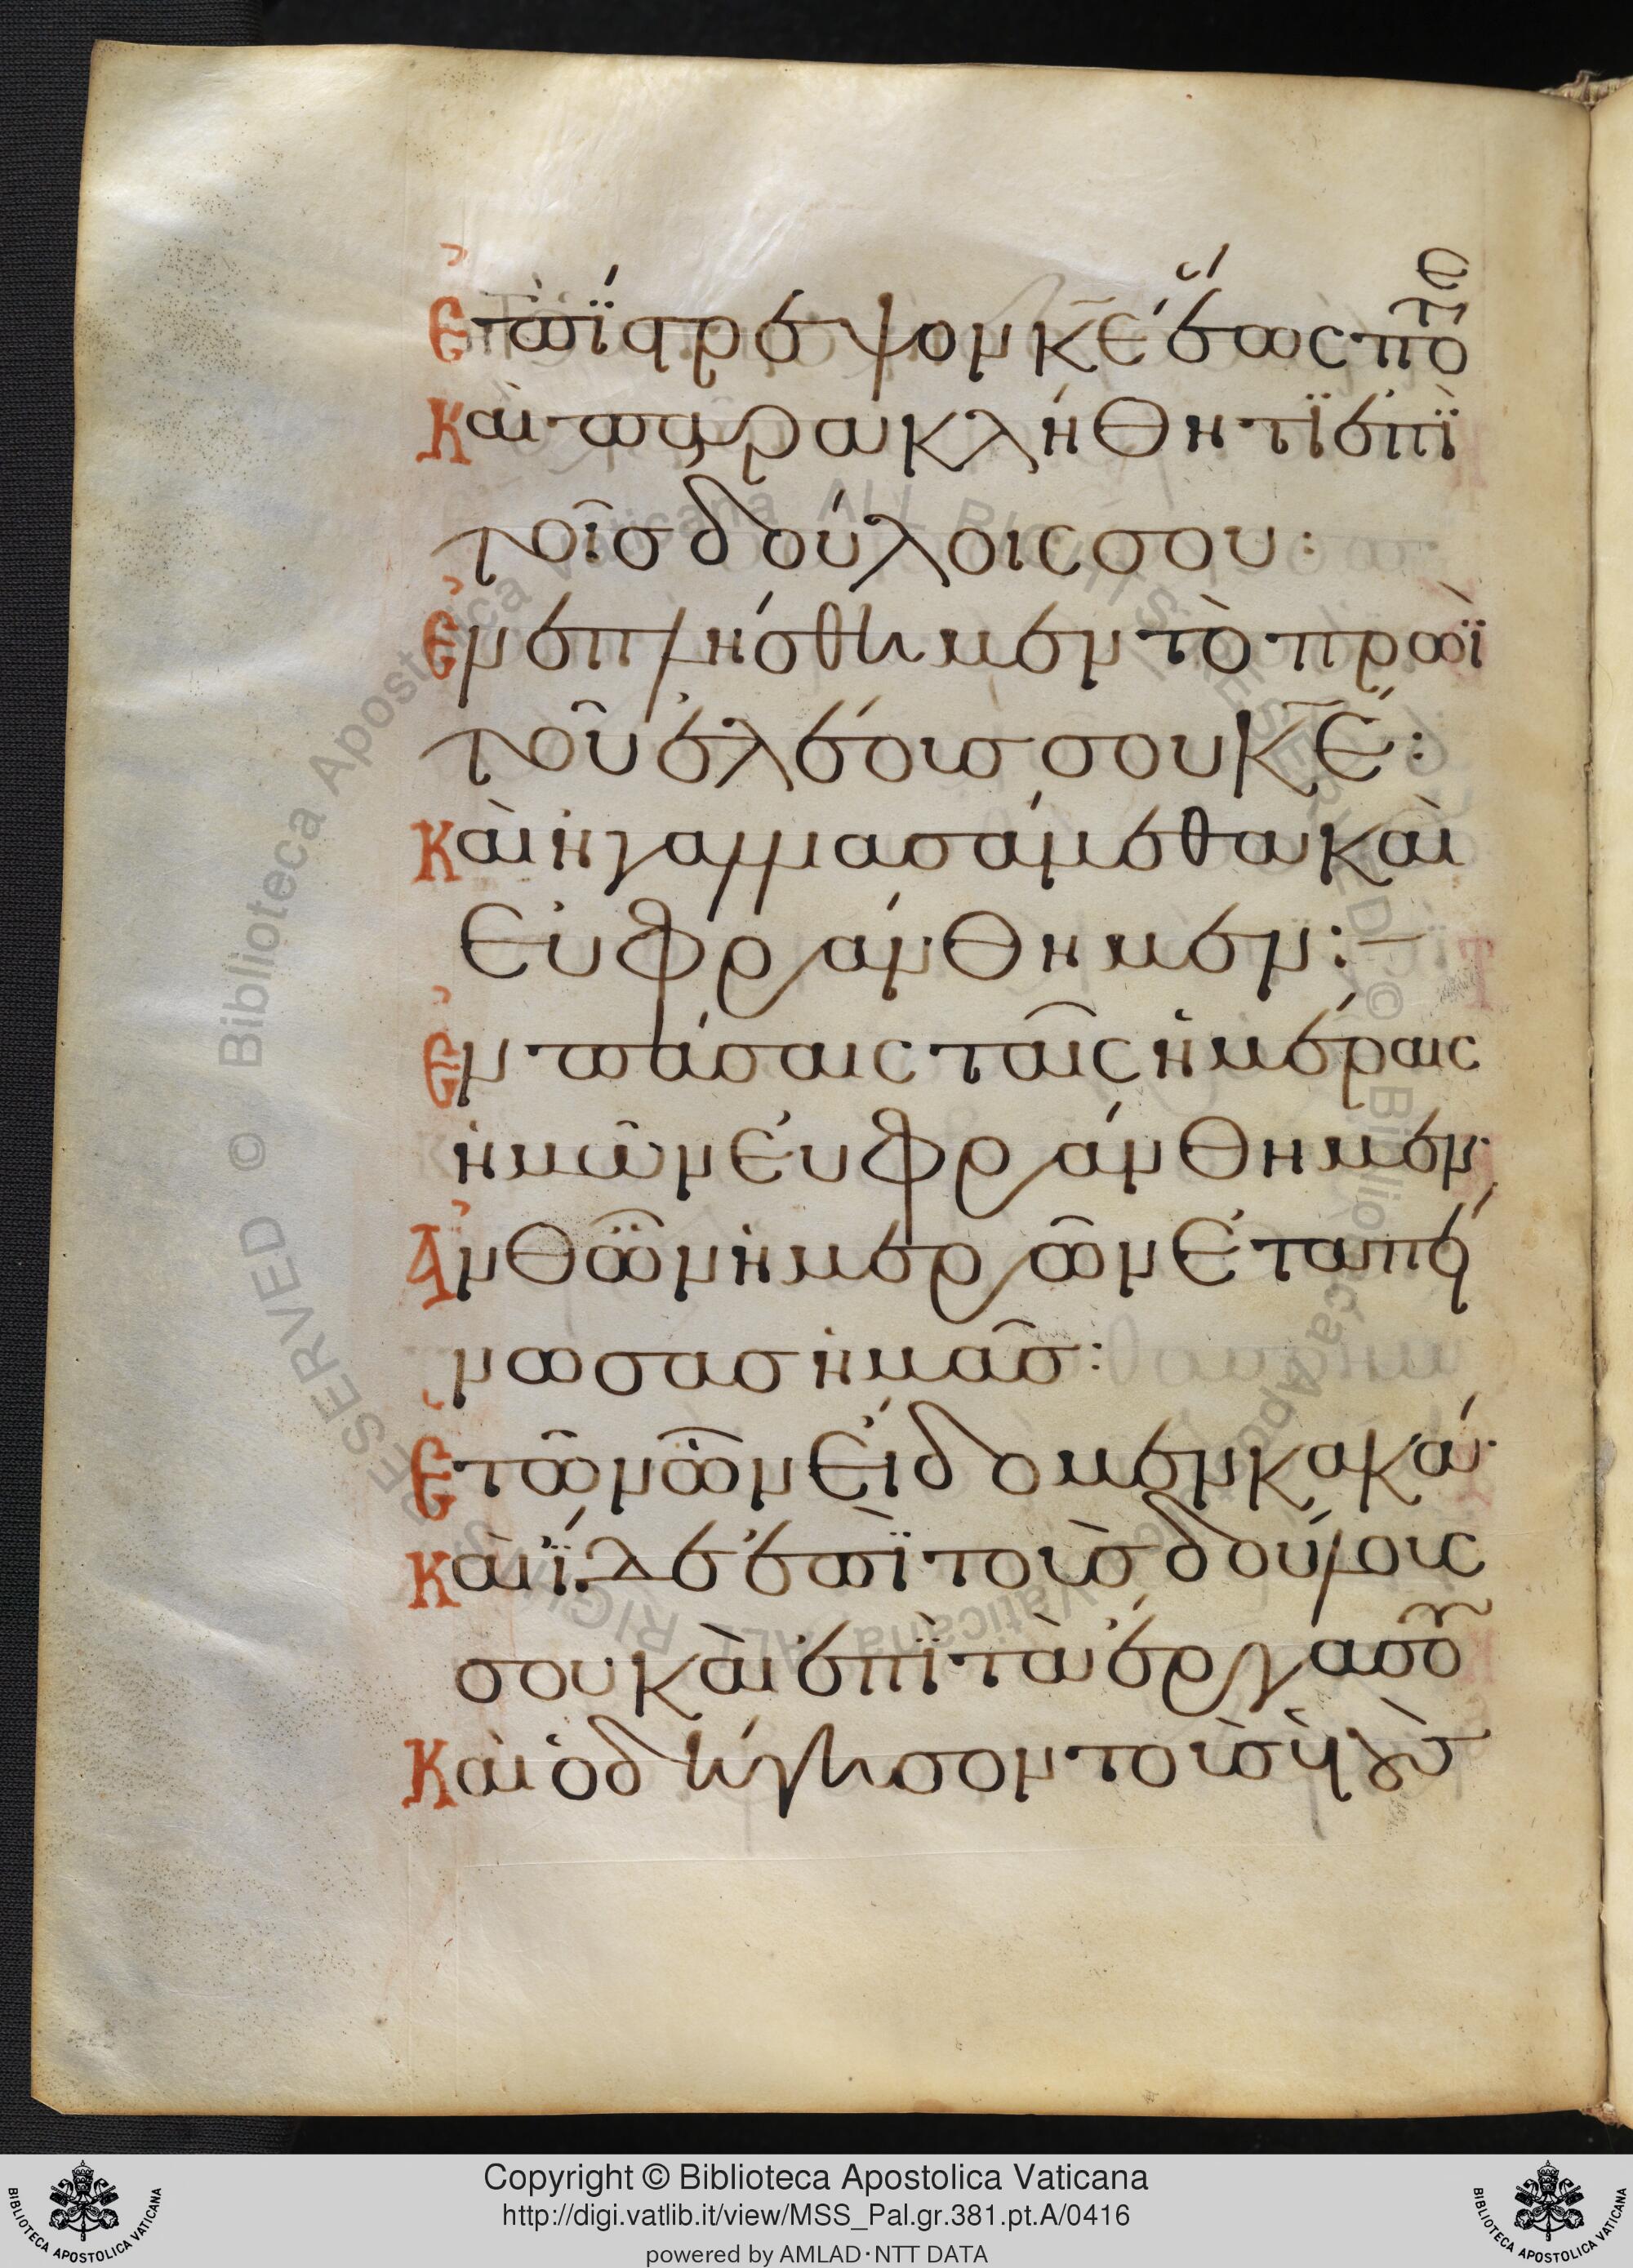 Ἐπίστρεψον κε ἕως πότε
Καὶ παρακλήθητι ἐπὶ
τοῖς δούλοις σου:
Ἐνεπλήσθημεν τὸ πρωὶ
τοῦ ἐλέους σου κε:
Καὶ ἠγαλλιασάμεθα καὶ
εὐφράνθημεν:–
Ἐν πάσαις ταῖς ἡμέραις
ἡμῶν εὐφράνθημεν·
Ἀνθ' ὧν ἡμερῶν ἐταπεί
νωσας ἡμᾶς:
Ἐτῶν ὧν εἴδομεν κακά·
Καὶ ἴδε ἐπὶ τοὺς δούλους
σου καὶ ἐπὶ τὰ ἔργα σοῦ
Καὶ ὁδήγησον τοὺς υἱοὺς
Copyright © Biblioteca Apostolica Vaticana
http://digi.vatlib.it/view/MSS_Pal.gr.381.pt.A/0416
powered by AMLAD·NTT DATA
BIBLIOTECA APOSTOLICA VATICANA
BIBLIOTECA APOSTOLICA VATICANA